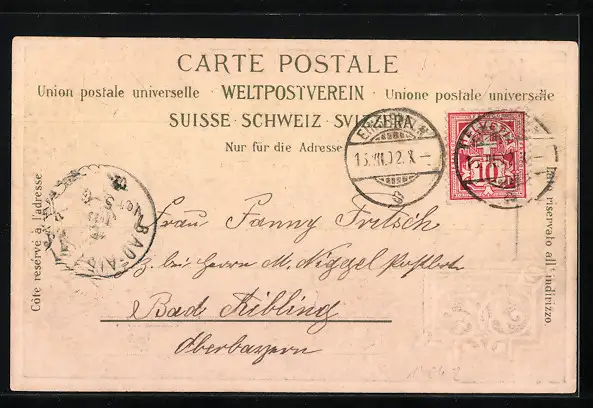 CARTE POSTALE
Union postale universelle · WELTPOSTVEREIN · Unione postale universale
SUISSE · SCHWEIZ · SVIZZERA
Nur für die Adresse
Côté réservé à l'adresse
Lato riservato all'indirizzo
HELVETIA
10
BAD AIB
Frau Fanny Fritsch
b. bei Herrn M. Niggel Postbote
Bad Aibling
Oberbayern